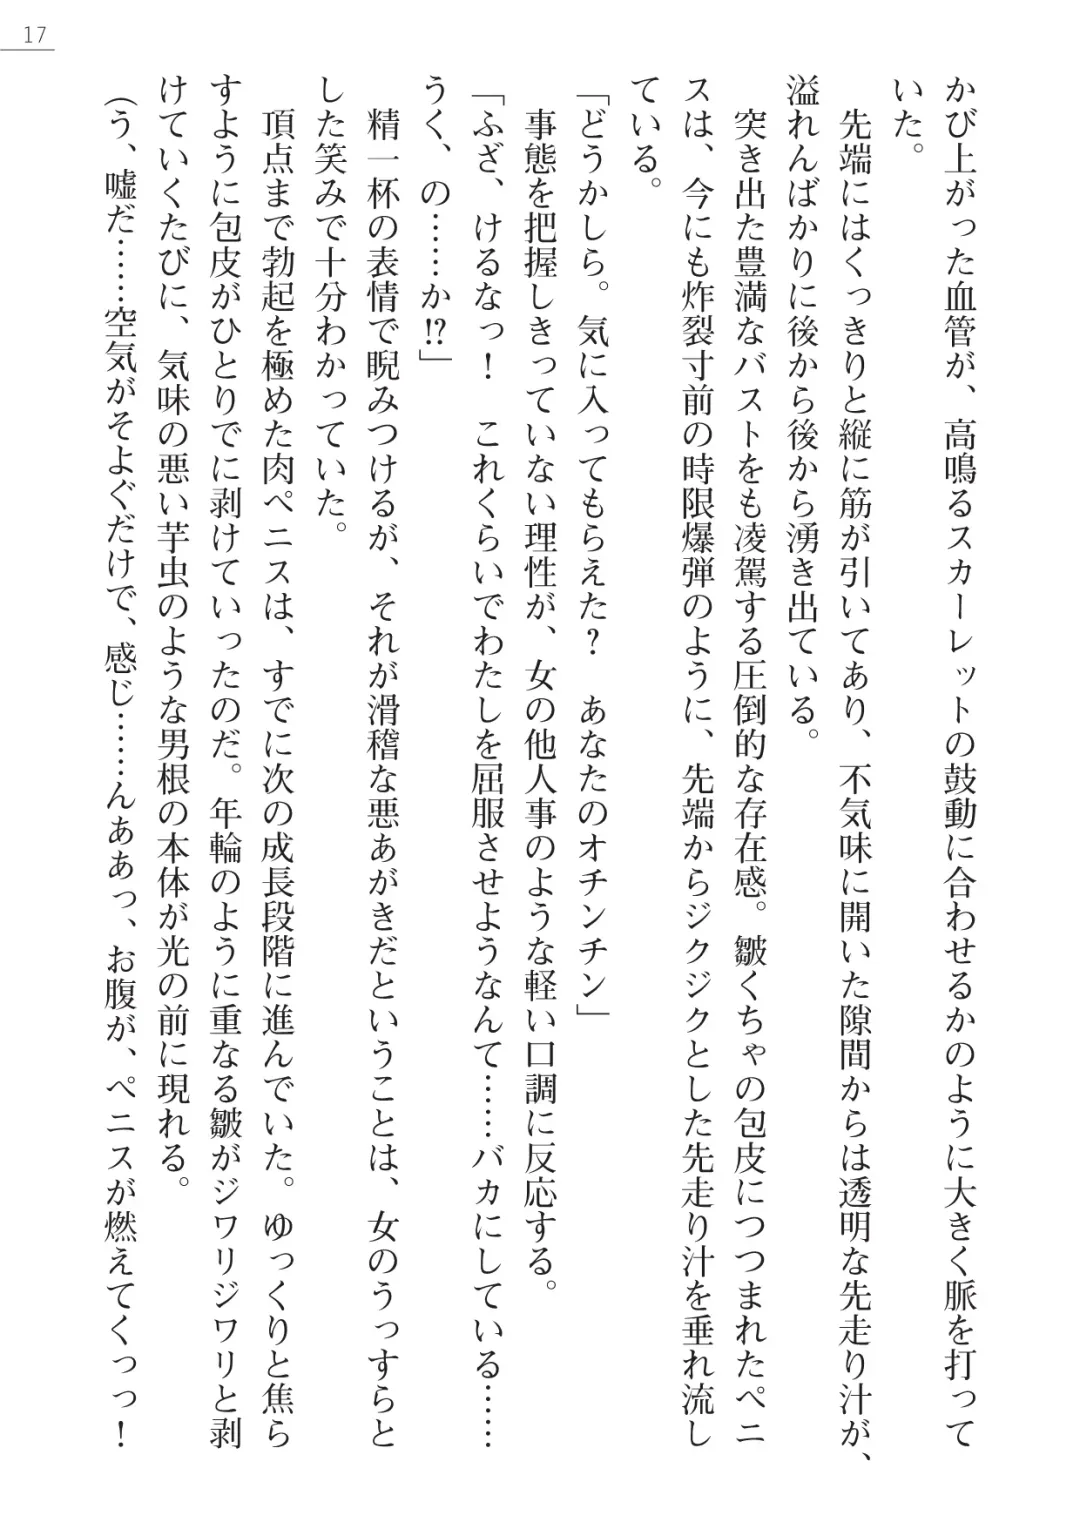 17
かび上がった血管が、高鳴るスカーレットの鼓動に合わせるかのように大きく脈を打って
いた。
先端にはくっきりと縦に筋が引いてあり、不気味に開いた隙間からは透明な先走り汁が、
溢れんばかりに後から後から湧き出ている。
突き出た豊満なバストをも凌駕する圧倒的な存在感。皺くちゃの包皮につつまれたペニ
スは、今にも炸裂寸前の時限爆弾のように、先端からジクジクとした先走り汁を垂れ流し
ている。
「どうかしら。気に入ってもらえた？　あなたのオチンチン」
事態を把握しきっていない理性が、女の他人事のような軽い口調に反応する。
「ふざ、けるなっ！　これくらいでわたしを屈服させようなんて……バカにしている……
うく、の……か!?」
精一杯の表情で睨みつけるが、それが滑稽な悪あがきだということは、女のうっすらと
した笑みで十分わかっていた。
頂点まで勃起を極めた肉ペニスは、すでに次の成長段階に進んでいた。ゆっくりと焦ら
すように包皮がひとりでに剥けていったのだ。年輪のように重なる皺がジワリジワリと剥
けていくたびに、気味の悪い芋虫のような男根の本体が光の前に現れる。
（う、嘘だ……空気がそよぐだけで、感じ……んああっ、お腹が、ペニスが燃えてくっっ！